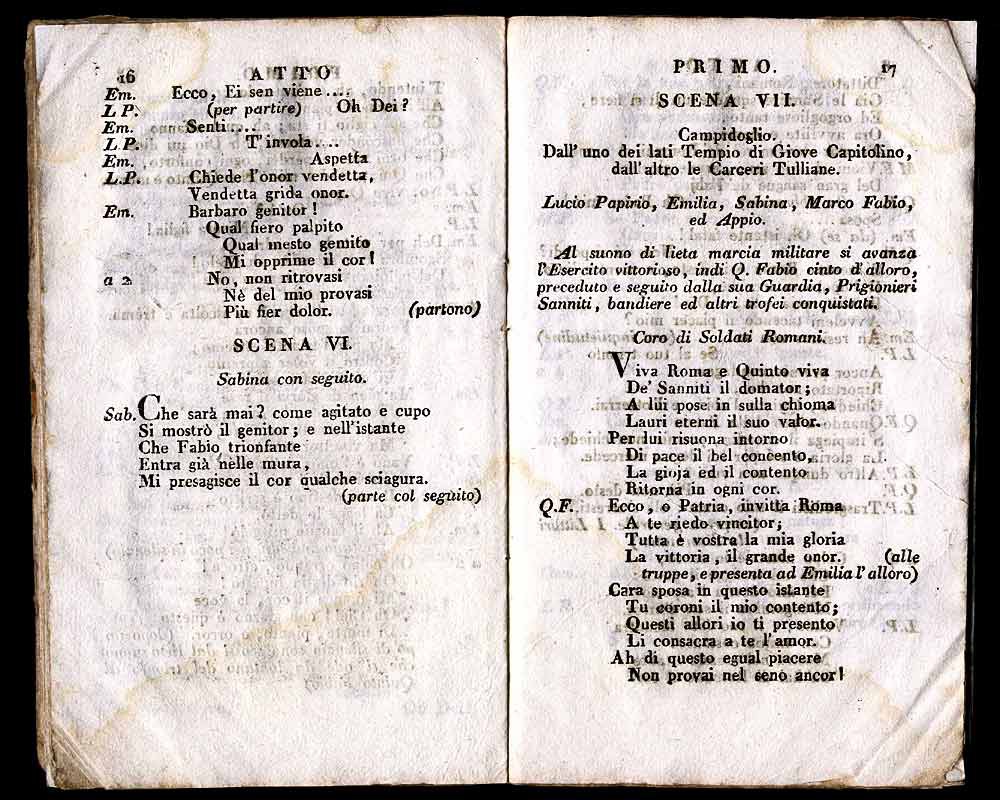 16 ATTO
Em. Ecco, Ei sen viene....
L P. (per partire) Oh Dei?
Em. Senti....
L P. T'invola....
Em. Aspetta
L.P. Chiede l'onor vendetta,
Vendetta grida onor.
Em. Barbaro genitor!
Qual fiero palpito
Qual mesto gemito
Mi opprime il cor!
a 2 No, non ritrovasi
Nè del mio provasi
Più fier dolor. (partono)
SCENA VI.
Sabina con seguito.
Sab. Che sarà mai? come agitato e cupo
Si mostrò il genitor; e nell'istante
Che Fabio trionfante
Entra già nelle mura,
Mi presagisce il cor qualche sciagura.
(parte col seguito)
PRIMO. 17
SCENA VII.
Campidoglio.
Dall'uno dei lati Tempio di Giove Capitolino,
dall'altro le Carceri Tulliane.
Lucio Papirio, Emilia, Sabina, Marco Fabio,
ed Appio.
Al suono di lieta marcia militare si avanza
l'Esercito vittorioso, indi Q. Fabio cinto d'alloro,
preceduto e seguito dalla sua Guardia, Prigionieri
Sanniti, bandiere ed altri trofei conquistati.
Coro di Soldati Romani.
Viva Roma e Quinto viva
De' Sanniti il domator;
A lui pose in sulla chioma
Lauri eterni il suo valor.
Per lui risuona intorno
Di pace il bel concento,
La gioja ed il contento
Ritorna in ogni cor.
Q.F. Ecco, o Patria, invitta Roma
A te riedo vincitor;
Tutta è vostra la mia gloria
La vittoria, il grande onor. (alle
truppe, e presenta ad Emilia l'alloro)
Cara sposa in questo istante
Tu coroni il mio contento;
Questi allori io ti presento
Li consacra a te l'amor.
Ah di questo egual piacere
Non provai nel seno ancor!